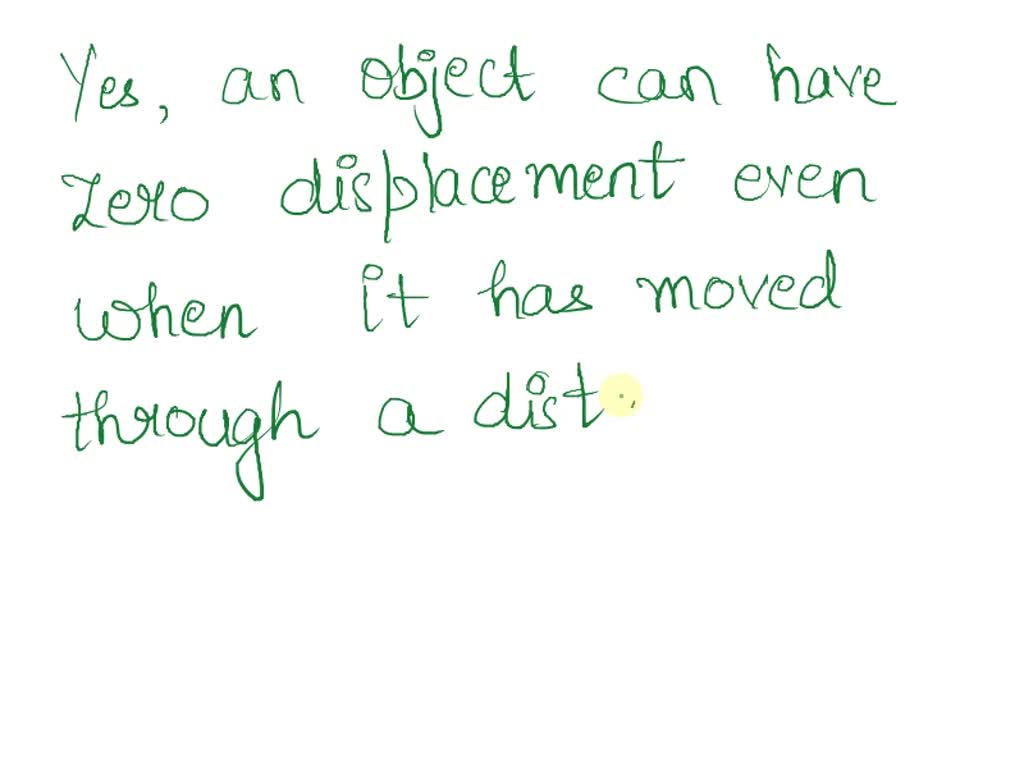 Yes, an object can have
zero displacement even
when it has moved
through a dist